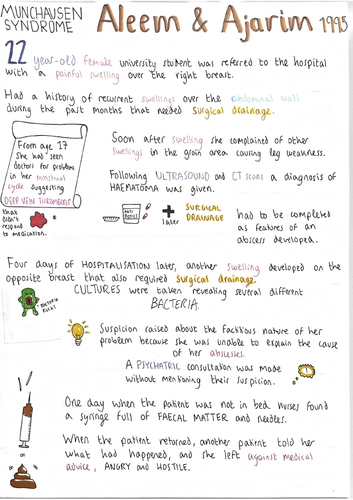 MUNCHAUSEN
SYNDROME
Aleem & Ajarim 1995
22 year-old female university student was referred to the hospital
with a painful swelling over the right breast.
Had a history of recurrent swellings over the abdominal wall
during the past months that needed surgical drainage.
From age 17
She had seen
doctors for problems
in her menstrual
cycle suggesting
DEEP VEIN THROMBOSIS
that
didn't
respond
to medication.
Soon after swelling she complained of other
swellings in the groin area causing leg weakness.
Following ULTRASOUND and CT scans a diagnosis of
HAEMATOMA was given.
+ SURGICAL
later DRAINAGE
had to be completed
as features of an
abscess developed.
Four days of HOSPITALISATION later, another swelling developed on the
opposite breast that also required surgical drainage.
CULTURES were taken revealing several different
BACTERIA.
Suspicion raised about the factious nature of her
problem because she was unable to explain the cause
of her abscesses.
A PSYCHIATRIC consultation was made
without mentioning their suspicion.
One day when the patient was not in bed nurses found
a syringe full of FAECAL MATTER and needles.
When the patient returned, another patient told her
what had happened, and she left against medical
advice, ANGRY and HOSTILE.